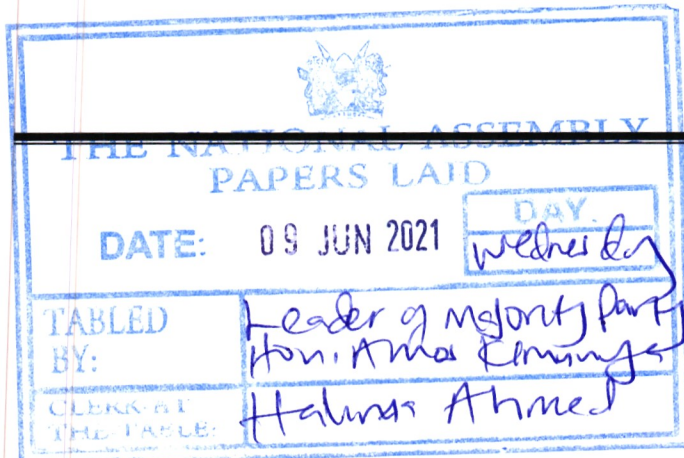 THE NATIONAL ASSEMBLY
PAPERS LAID
DATE: 09 JUN 2021
DAY.
Wednesday
TABLED BY:
Leader of Majority Party
Hon. Amos Kimunya
CLERK-AT THE-TABLE:
Halima Ahmed